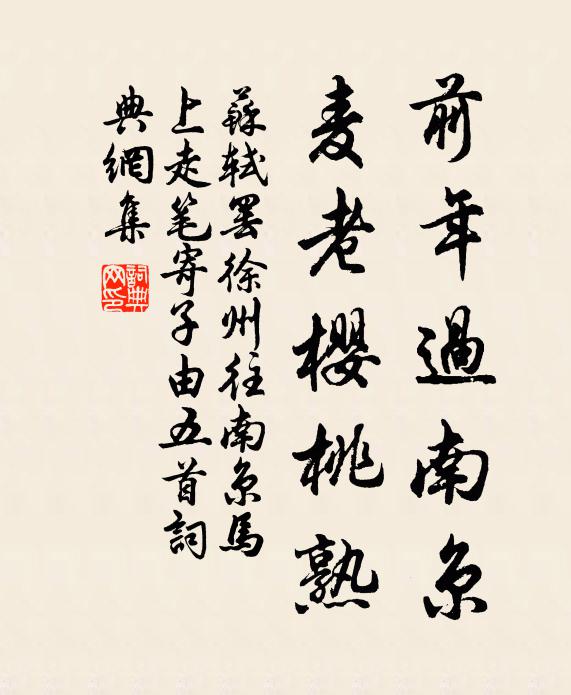 前年過南京
麦老櫻桃熟
蘇軾罢徐州往南京馬
上走笔寄子由五首詞
典網集
詞典网印